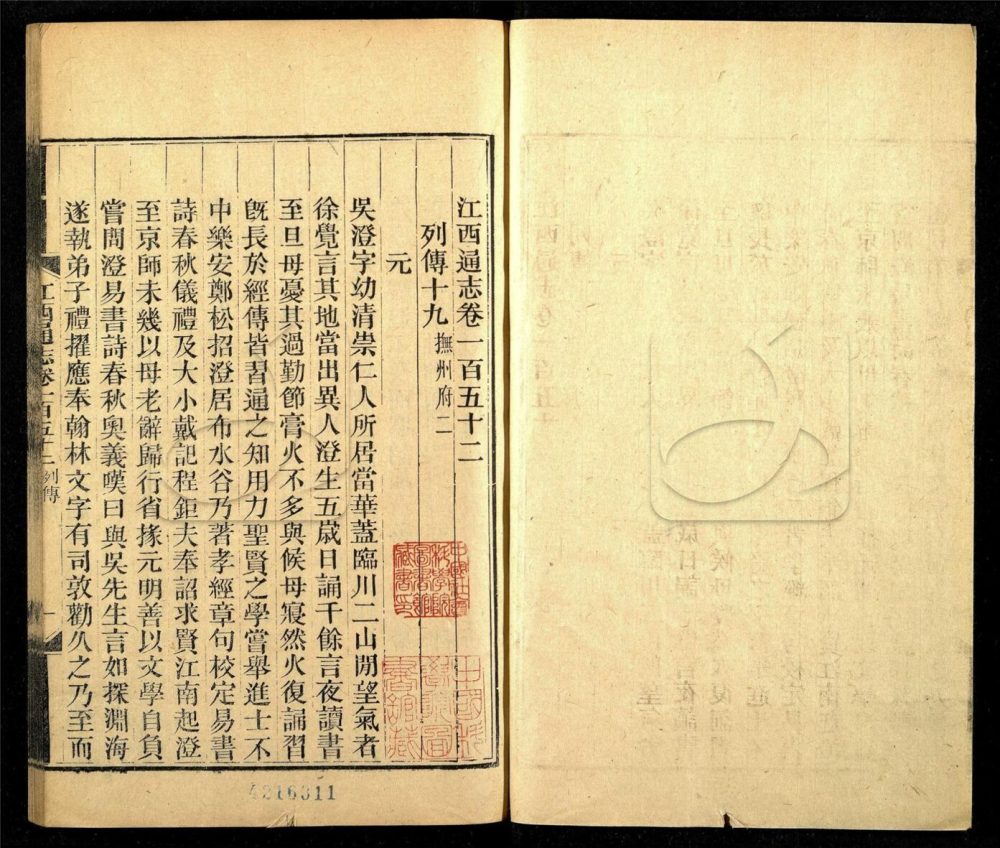 江西通志卷一百五十二
列傳十九撫州府二
元
吳澄字幼清崇仁人所居當華蓋臨川二山閒望氣者
徐覺言其地當出異人澄生五歲日誦千餘言夜讀書
至旦母憂其過勤節膏火不多與候母寢然火復誦習
旣長於經傳皆習通之知用力聖賢之學嘗舉進士不
中樂安鄭松招澄居布水谷乃著孝經章句校定易書
詩春秋儀禮及大小戴記程鉅夫奉詔求賢江南起澄
至京師未幾以母老辭歸行省掾元明善以文學自負
嘗問澄易書詩春秋奧義嘆曰與吳先生言如探淵海
遂執弟子禮擢應奉翰林文字有司敦勸久之乃至而
江西通志卷一百五十二 列傳
一
4216311